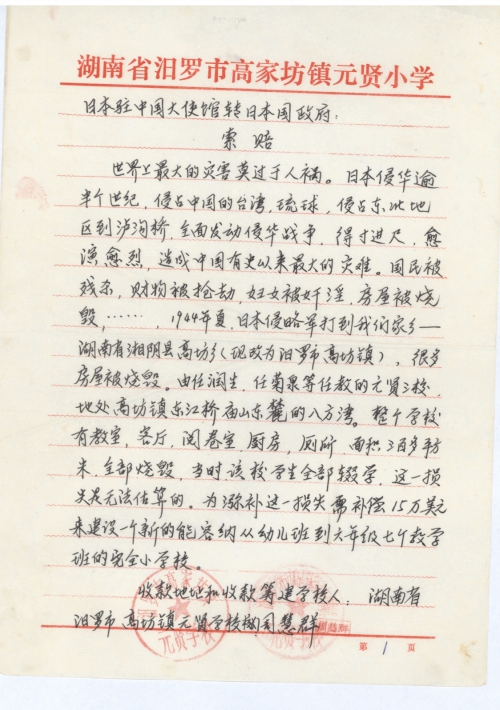 湖南省汨罗市高家坊镇元贤小学
日本驻中国大使馆转日本国政府：
索赔
世界上最大的灾害莫过于人祸。日本侵华逾
半个世纪，侵占中国的台湾，琉球，侵占东北地
区到泸沟桥，全面发动侵华战争，得寸进尺，愈
演愈烈，造成中国有史以来最大的灾难。国民被
残杀，财物被抢劫，妇女被奸淫，房屋被烧
毁，……，1944年夏，日本侵略军打到我们家乡—
湖南省湘阴县高坊乡（现改为汨罗市高坊镇），很多
房屋被烧毁。由任润生，任菊泉等任教的元贤学校，
地处高坊镇东江桥庙山东麓的八方湾。整个学校
有教室，客厅，阅卷室，厨房，厕所，面积三百多平方
米，全部烧毁，当时该校学生全部辍学，这一损
失是无法估算的。为弥补这一损失需补偿15万美元
来建设一个新的能容纳从幼儿班到六年级七个教学
班的完全小学校。
收款地址和收款筹建学校人：湖南省
汨罗市高坊镇元贤学校 周慧群
第 1 页